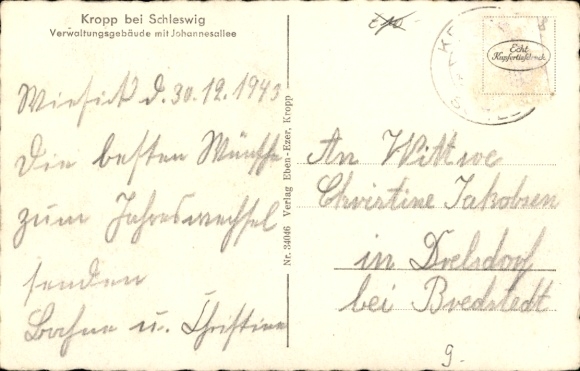 Kropp bei Schleswig
Verwaltungsgebäude mit Johannesallee
d. 30.12.1943
Die besten Wünsche
zum Jahreswechsel
senden
u. Christine
Nr. 34046 Verlag Eben-Ezer, Kropp
Echt
Kupfertiefdruck
An Wittwe
Christine Jakobsen
in Drelsdorf
bei Bredstedt
9.